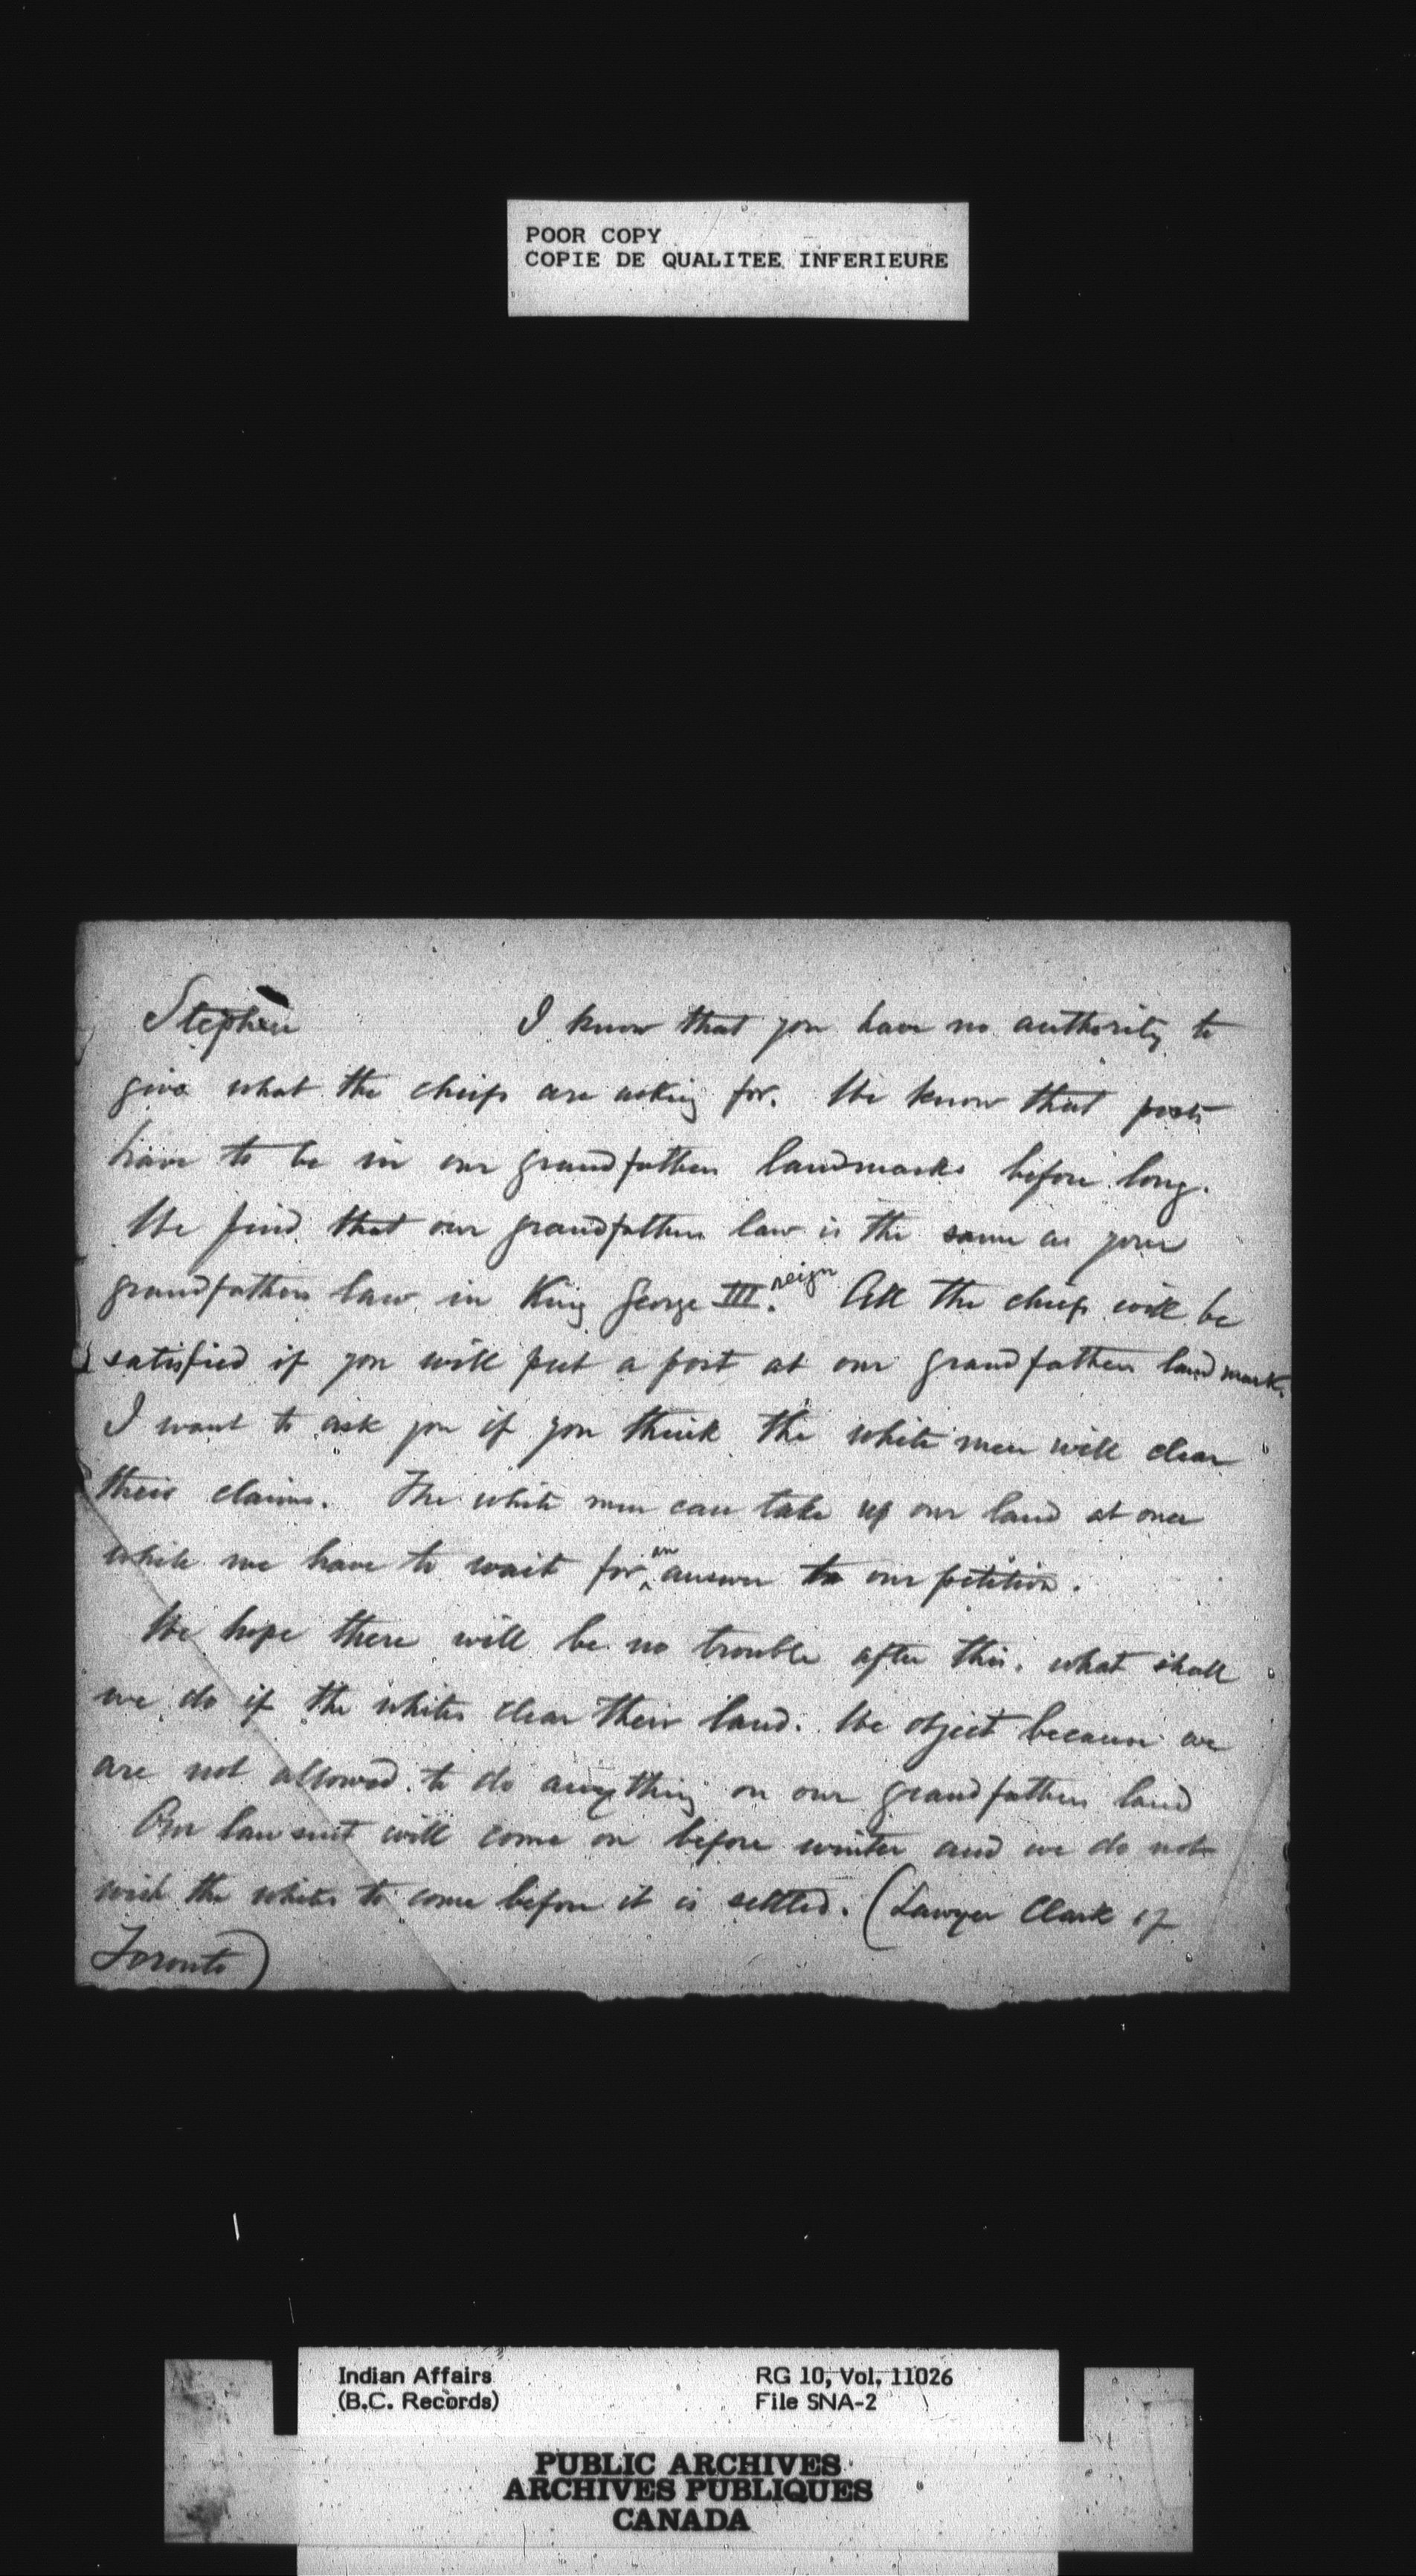 POOR COPY
COPIE DE QUALITEE INFERIEURE
Stephen I know that you have no authority to
give what the cheifs are asking for. We know that posts
have to be in our grandfathers landmarks before long.
We find that our grandfathers law is the same as your
grandfathers law in King George III. reign All the cheifs will be
satisfied if you will put a post at our grandfathers landmark.
I want to ask you if you think the white men will clear
their claims. The white men can take up our land at once
while we have to wait for an answer to our petition.
We hope there will be no trouble after this. what shall
we do if the whites clear their land. We object because we
are not allowed to do anything on our grandfathers land
Our lawsuit will come on before winter and we do not
wish the whites to come before it is settled. (Lawyer Clark of
Toronto)
Indian Affairs RG 10, Vol. 11026
(B.C. Records) File SNA-2
PUBLIC ARCHIVES
ARCHIVES PUBLIQUES
CANADA